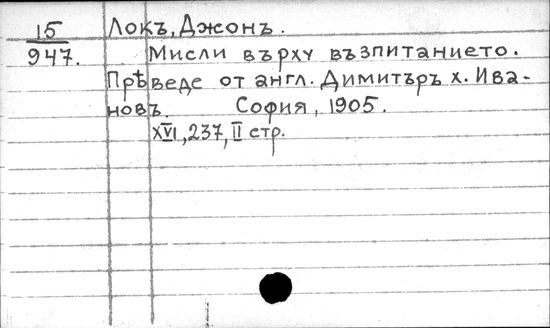 15 Локъ, Джонъ.
947. Мисли върху възпитанието.
Прѣведе от англ. Димитъръ х. Ива-
новъ. София, 1905.
XVI, 237, II стр.